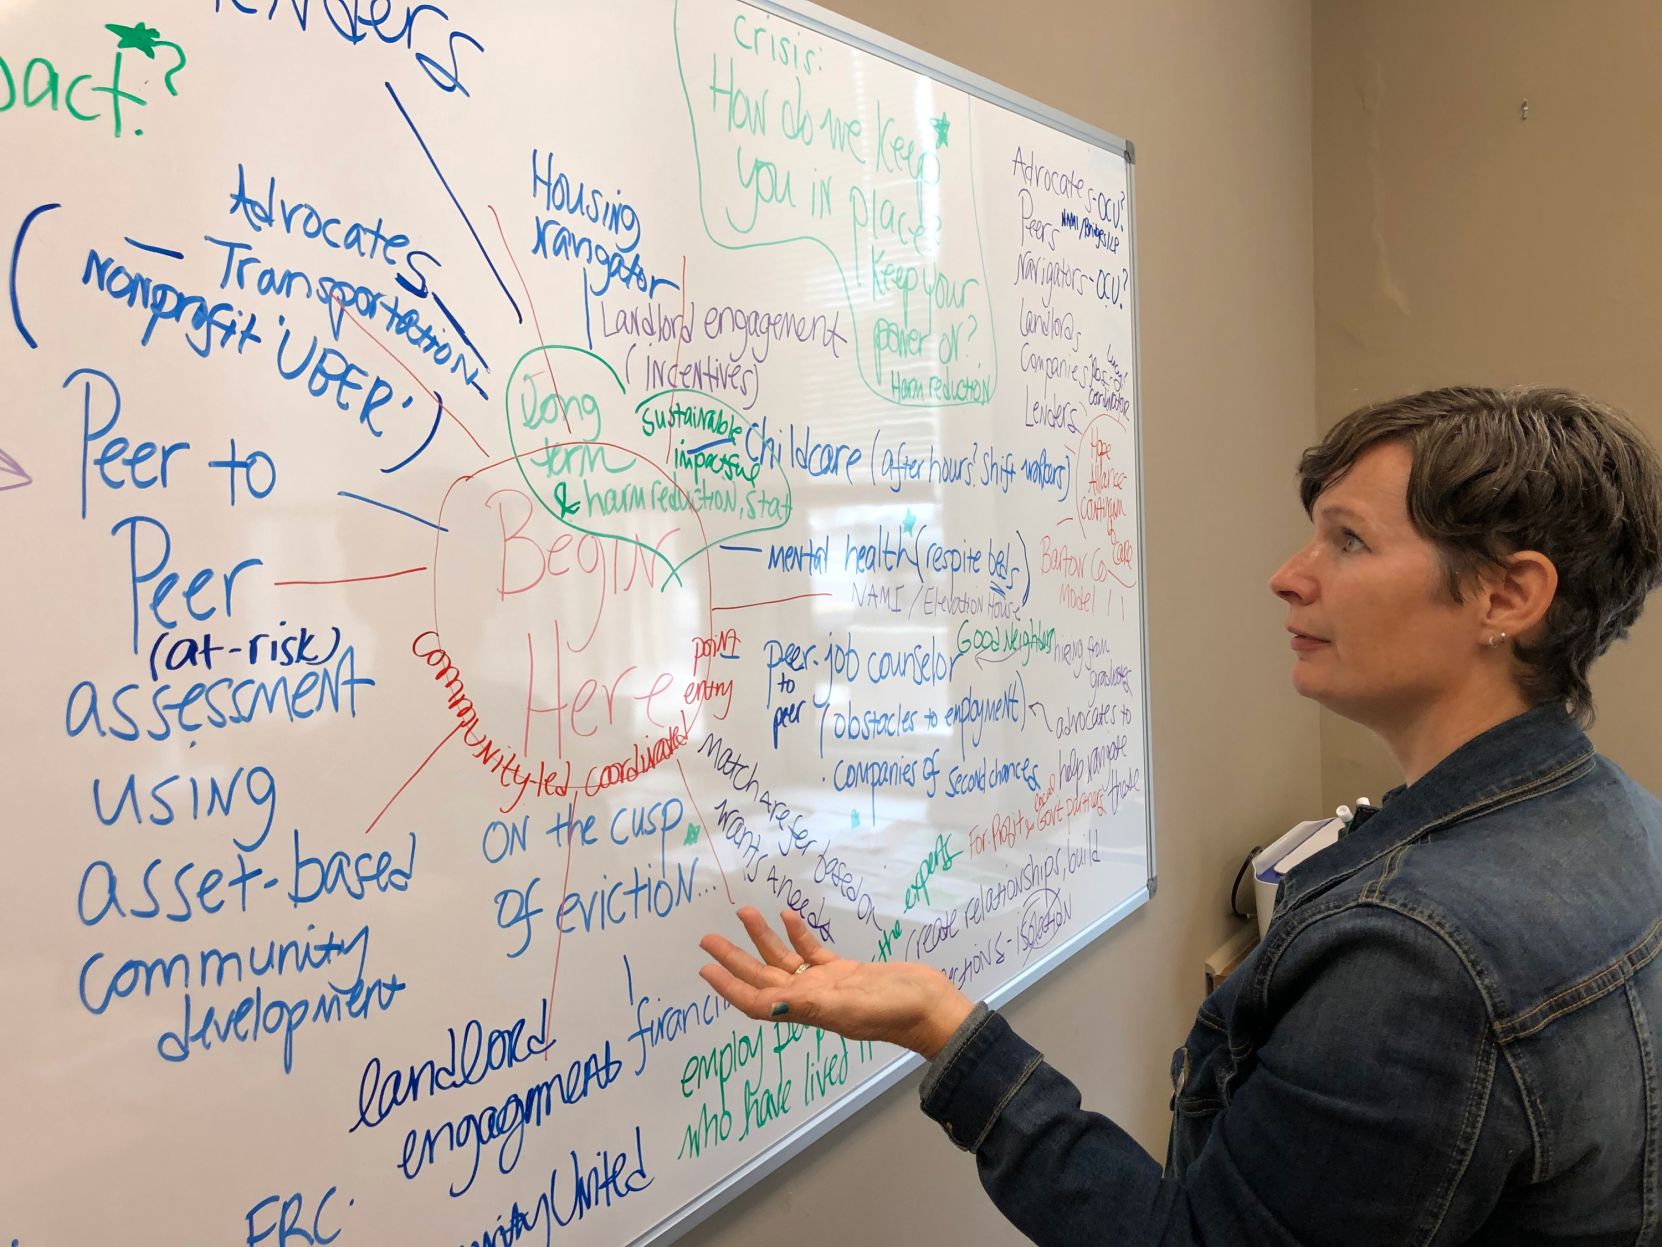 pact?
Crisis:
How do we keep
you in place?
Keep your
power on?
Harm reduction
Advocates
- Transportation
nonprofit 'UBER'
Housing
navigator
Landlord engagement
(incentives)
Long
term
& harm reduction, stat
sustainable
impactful
Peer to
Peer
(at-risk)
assessment
using
asset-based
community
development
Begin
Here
community-led, coordinated
point
entry
Childcare (after hours? shift workers)
mental health (respite beds)
NAMI / Elevation House
peer
to
peer
job counselor
Good Neighbor
(obstacles to employment)
companies of second chances
hiring from
graduates
advocates to
help
those
Advocates - OCU?
Peers
Navigators - OCU?
Landlords
Companies
Lenders
Hope
Alliance
continuum
of
care
Bartow Co
Model
on the cusp
of eviction...
Match & refer based on
wants & needs
the experts
For-Profit & Gov't partners
local
create relationships, build
isolation
landlord
engagement
employ
who have lived it
United
FRC